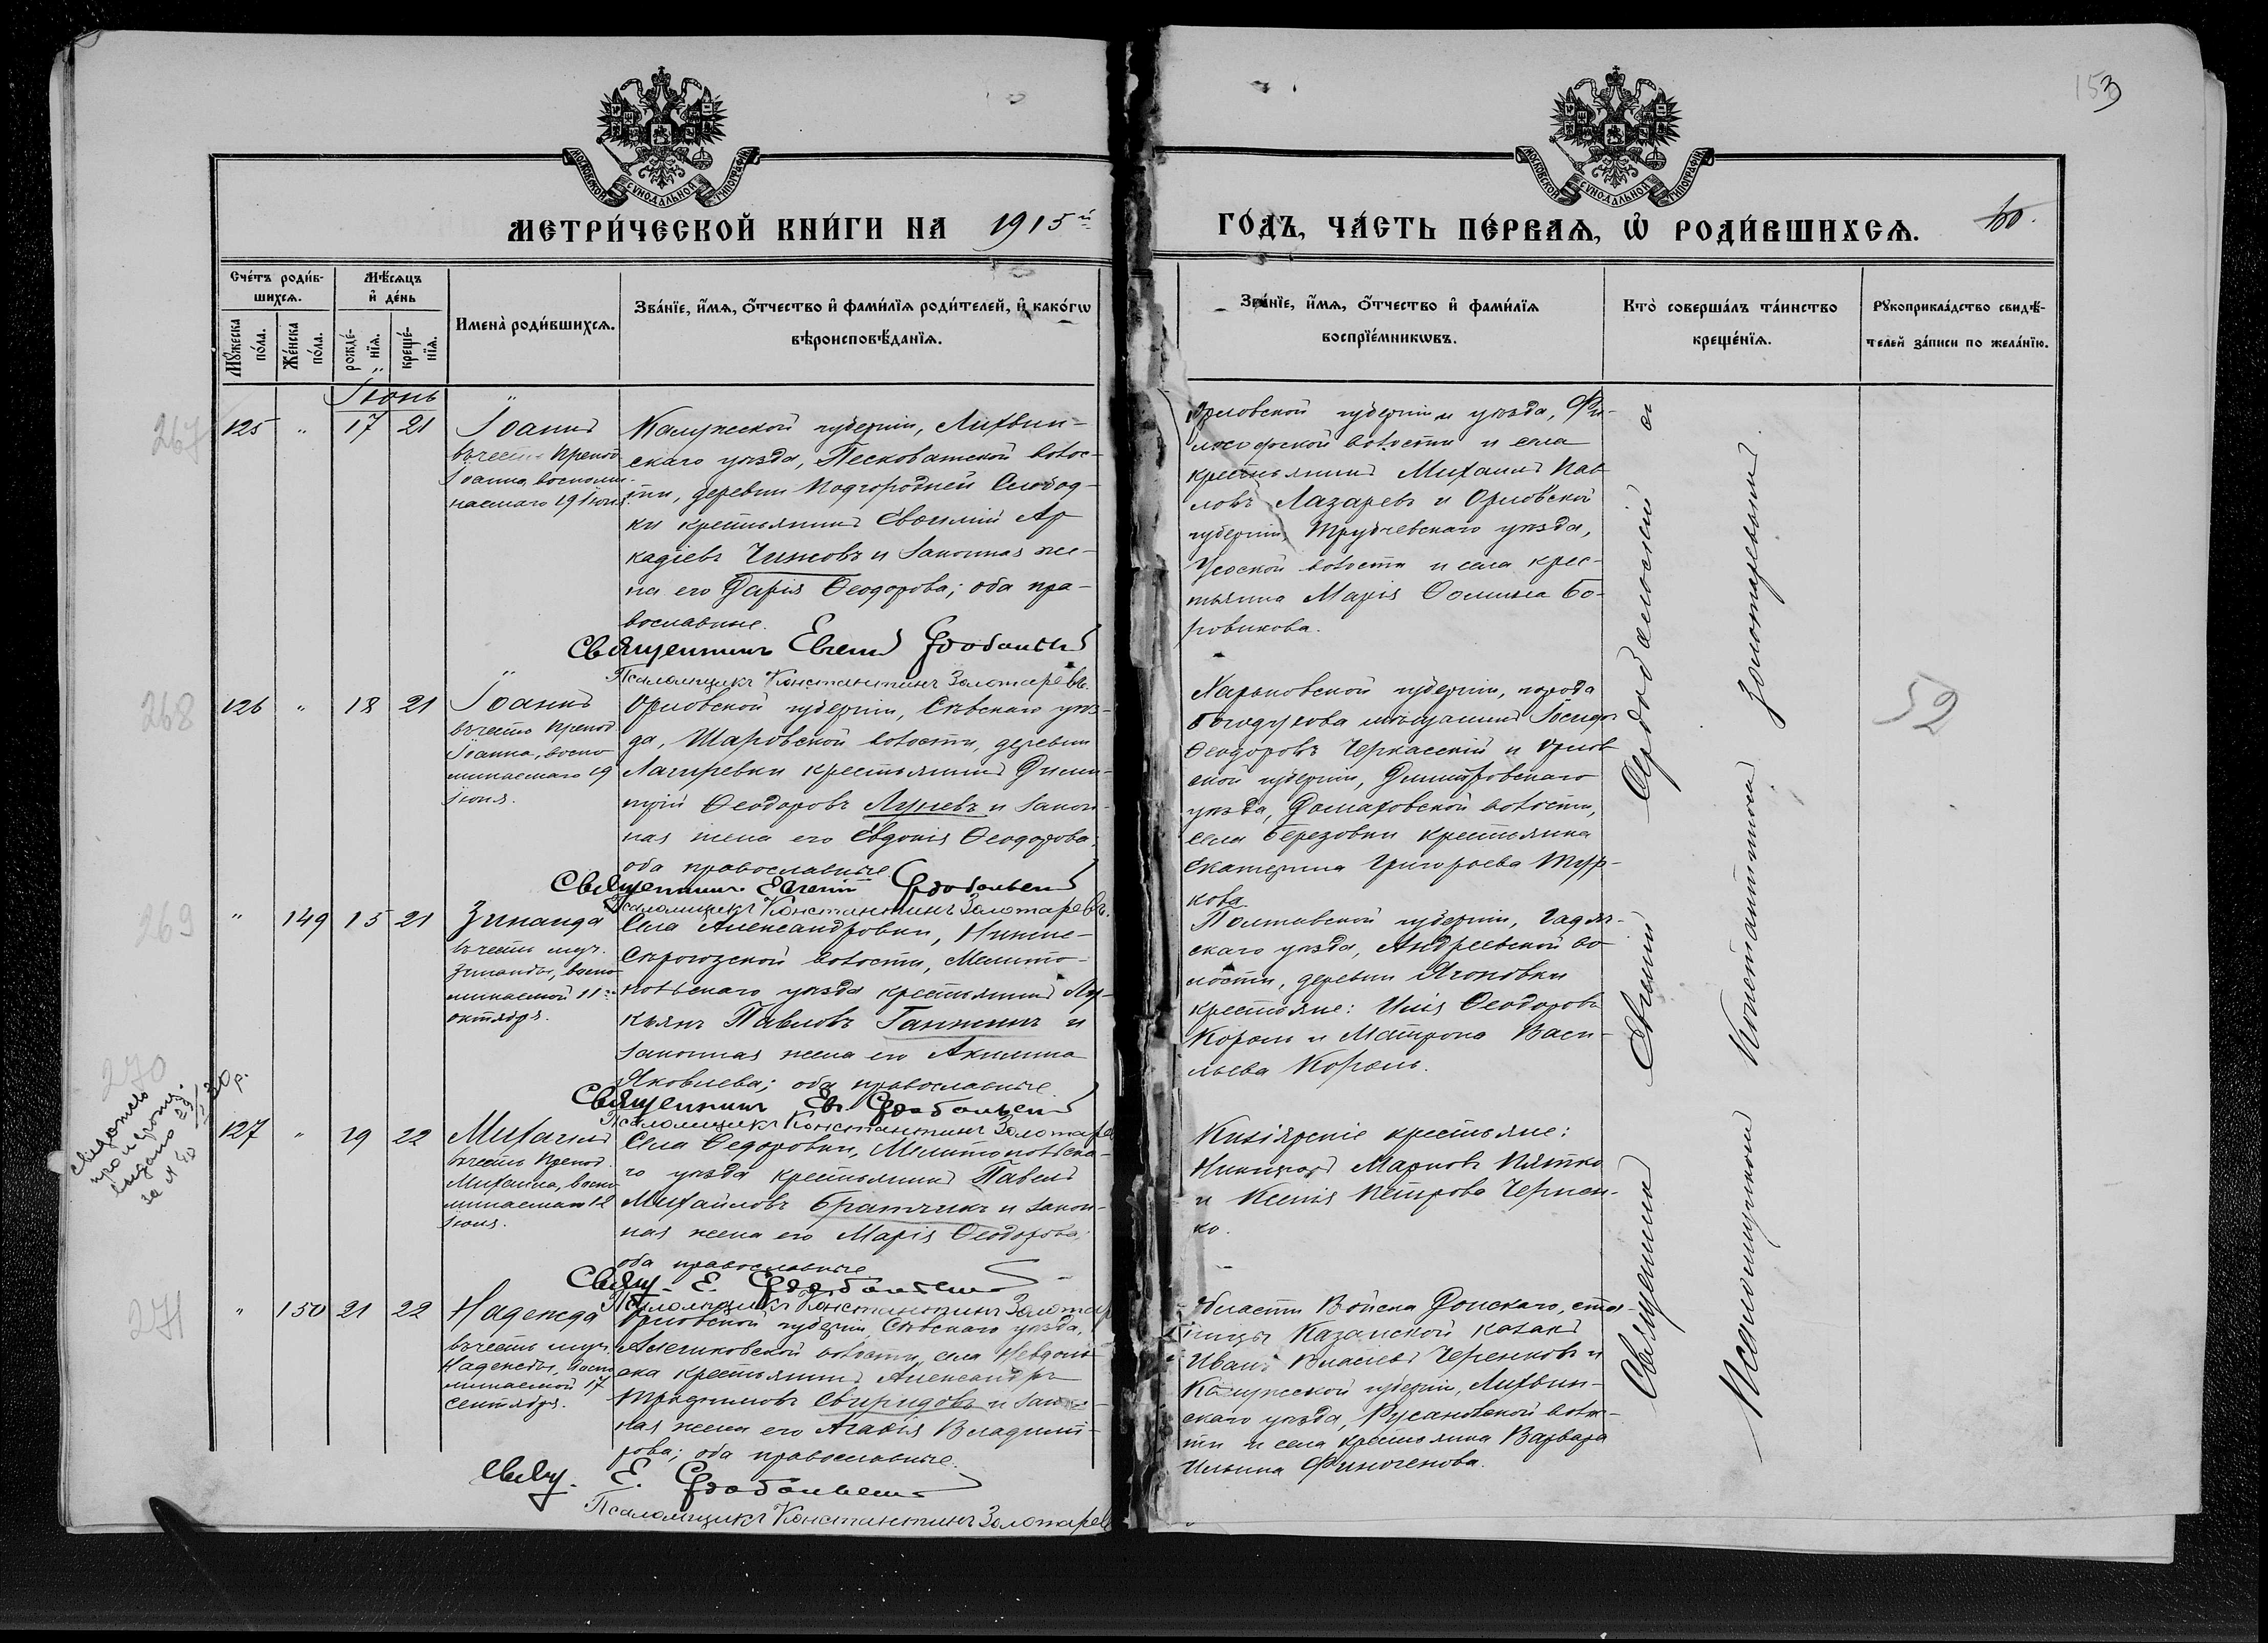 153
МОСКОВСКОЙ СУНОДАЛЬНОЙ ТИПОГРАФІИ
МОСКОВСКОЙ СУНОДАЛЬНОЙ ТИПОГРАФІИ
МЕТРИ́ЧЕСКОЙ КНИ́ГИ НА 1915й
ГО́ДЪ, ЧА́СТЬ ПЕ́РВАѦ, Ѡ҆ РОДИ́ВШИХСѦ.
60.
Сче́тъ роди́в-
шихсѧ.
Мꙋ́жеска
по́ла.
Же́нска
по́ла.
Мѣ́сѧцъ
и҆ де́нь
рожде́-
нїѧ.
креще́-
нїѧ.
Имена̀ роди́вшихсѧ.
Зва́нїе, и҆́мѧ, ѻ҆́тчество и҆ фами́лїѧ роди́телей, и҆ како́гѡ
вѣроисповѣ́данїѧ.
Зва́нїе, и҆́мѧ, ѻ҆́тчество и҆ фами́лїѧ
воспрїе́мникѡвъ.
Кто̀ соверша́лъ та́инство
креще́нїѧ.
Рꙋкоприкла́дство свидѣ́-
телей за́писи по жела́нїю.
Іюнь
267
125 " 17 21
Іоаннъ
въ честь препод
Іоанна, воспоми-
наемаго 19 іюн.
Калужской губерніи, Лихвин-
скаго уѣзда, Песковатской волос-
ти, деревни Подгородней Слобод-
ки крестьянинъ Евсилій Ар
кадіевъ Чижовъ и законная же-
на его Дарія Ѳеодорова; оба пра-
вославные.
Священникъ Евгеній
Псаломщикъ Константинъ Золотаревъ.
Орловской губерніи и уѣзда, Фи-
лософской волости и села
крестьянинъ Михаилъ Пав
ловъ Лазаревъ и Орловской
губерніи, Трубчевскаго уѣзда,
Усоской волости и села крес-
тьянка Марія Ѳомина Бо-
ровикова.
268
126 " 18 21
Іоаннъ
въ честь препод
Іоанна, воспо
минаемаго 19
іюня.
Орловской губерніи, Сѣвскаго уѣз-
да, Шаровской волости, деревни
Лагиревки крестьянинъ Дими-
трій Ѳеодоровъ Луневъ и закон-
ная жена его Евдокія Ѳеодорова;
оба православные
Священникъ Евгеній
Псаломщикъ Константинъ Золотаревъ.
Харьковской губерніи, города
Богодухова мѣщанинъ Іосифъ
Ѳеодоровъ Черкасскій и Орлов
ской губерніи, Димитровскаго
уѣзда, Домаховской волости,
села Березовки крестьянка
Екатерина Григорьева Тур-
кова
52
269
" 149 15 21
Зинаида
въ честь муч.
Зинаиды, воспо
минаемой 11го
октября.
Села Александровки, Нижне-
Сѣрогозской волости, Мелито-
польскаго уѣзда крестьянинъ Лу-
кьянъ Павловъ Ганжинъ и
законная жена его Акилина
Яковлева; оба православные.
Священникъ Ев.
Псаломщикъ Константинъ Золотаре
Полтавской губерніи, Гадяч-
скаго уѣзда, Андреевской во
лости, деревни Ягоновки
крестьяне: Илія Ѳеодоровъ
Король и Матрона Васи-
льева Король.
270
127 " 19 22
Михаилъ
въ честь препод.
Михаила, воспо
минаемаго 12
іюня.
Села Ѳедоровки, Мелитопольска-
го уѣзда крестьянинъ Павелъ
Михайловъ Братчикъ и закон-
ная жена его Марія Ѳеодорова;
оба православные
Свящ. Е.
Псаломщикъ Константинъ Золотар
Кизіярскіе крестьяне:
Никифоръ Марковъ Пятко
и Ксенія Петрова Чернен-
ко.
271
" 150 21 22
Надежда
въ честь муч.
Надежды, воспо
минаемой 17
сентября.
Орловской губерніи, Сѣвскаго уѣзда,
Алешковской волости, села Невдоль-
ска крестьянинъ Александръ
Трофимовъ Свиридовъ и закон-
ная жена его Агавія Владими-
рова; оба православные.
Свящ. Е.
Псаломщикъ Константинъ Золотарев
Области Войска Донскаго, ста-
ницы Казанской казакъ
Иванъ Власіевъ Черенковъ и
Калужской губерніи, Лихвин-
скаго уѣзда, Русановской волос-
ти и села крестьянка Варвара
Ильина Финогенова.
Священникъ Евгеній
Псаломщикомъ Константиномъ Золотаревымъ.